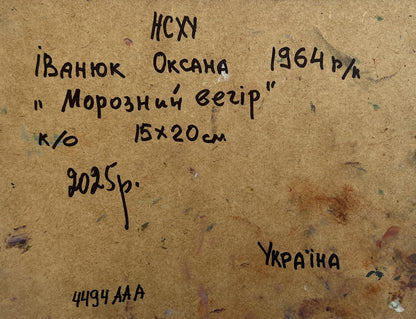 НСХУ
Іванюк Оксана 1964 р/н
„Морозний вегір"
к/о 15×20 см
2025р.
Україна
4494 AAA